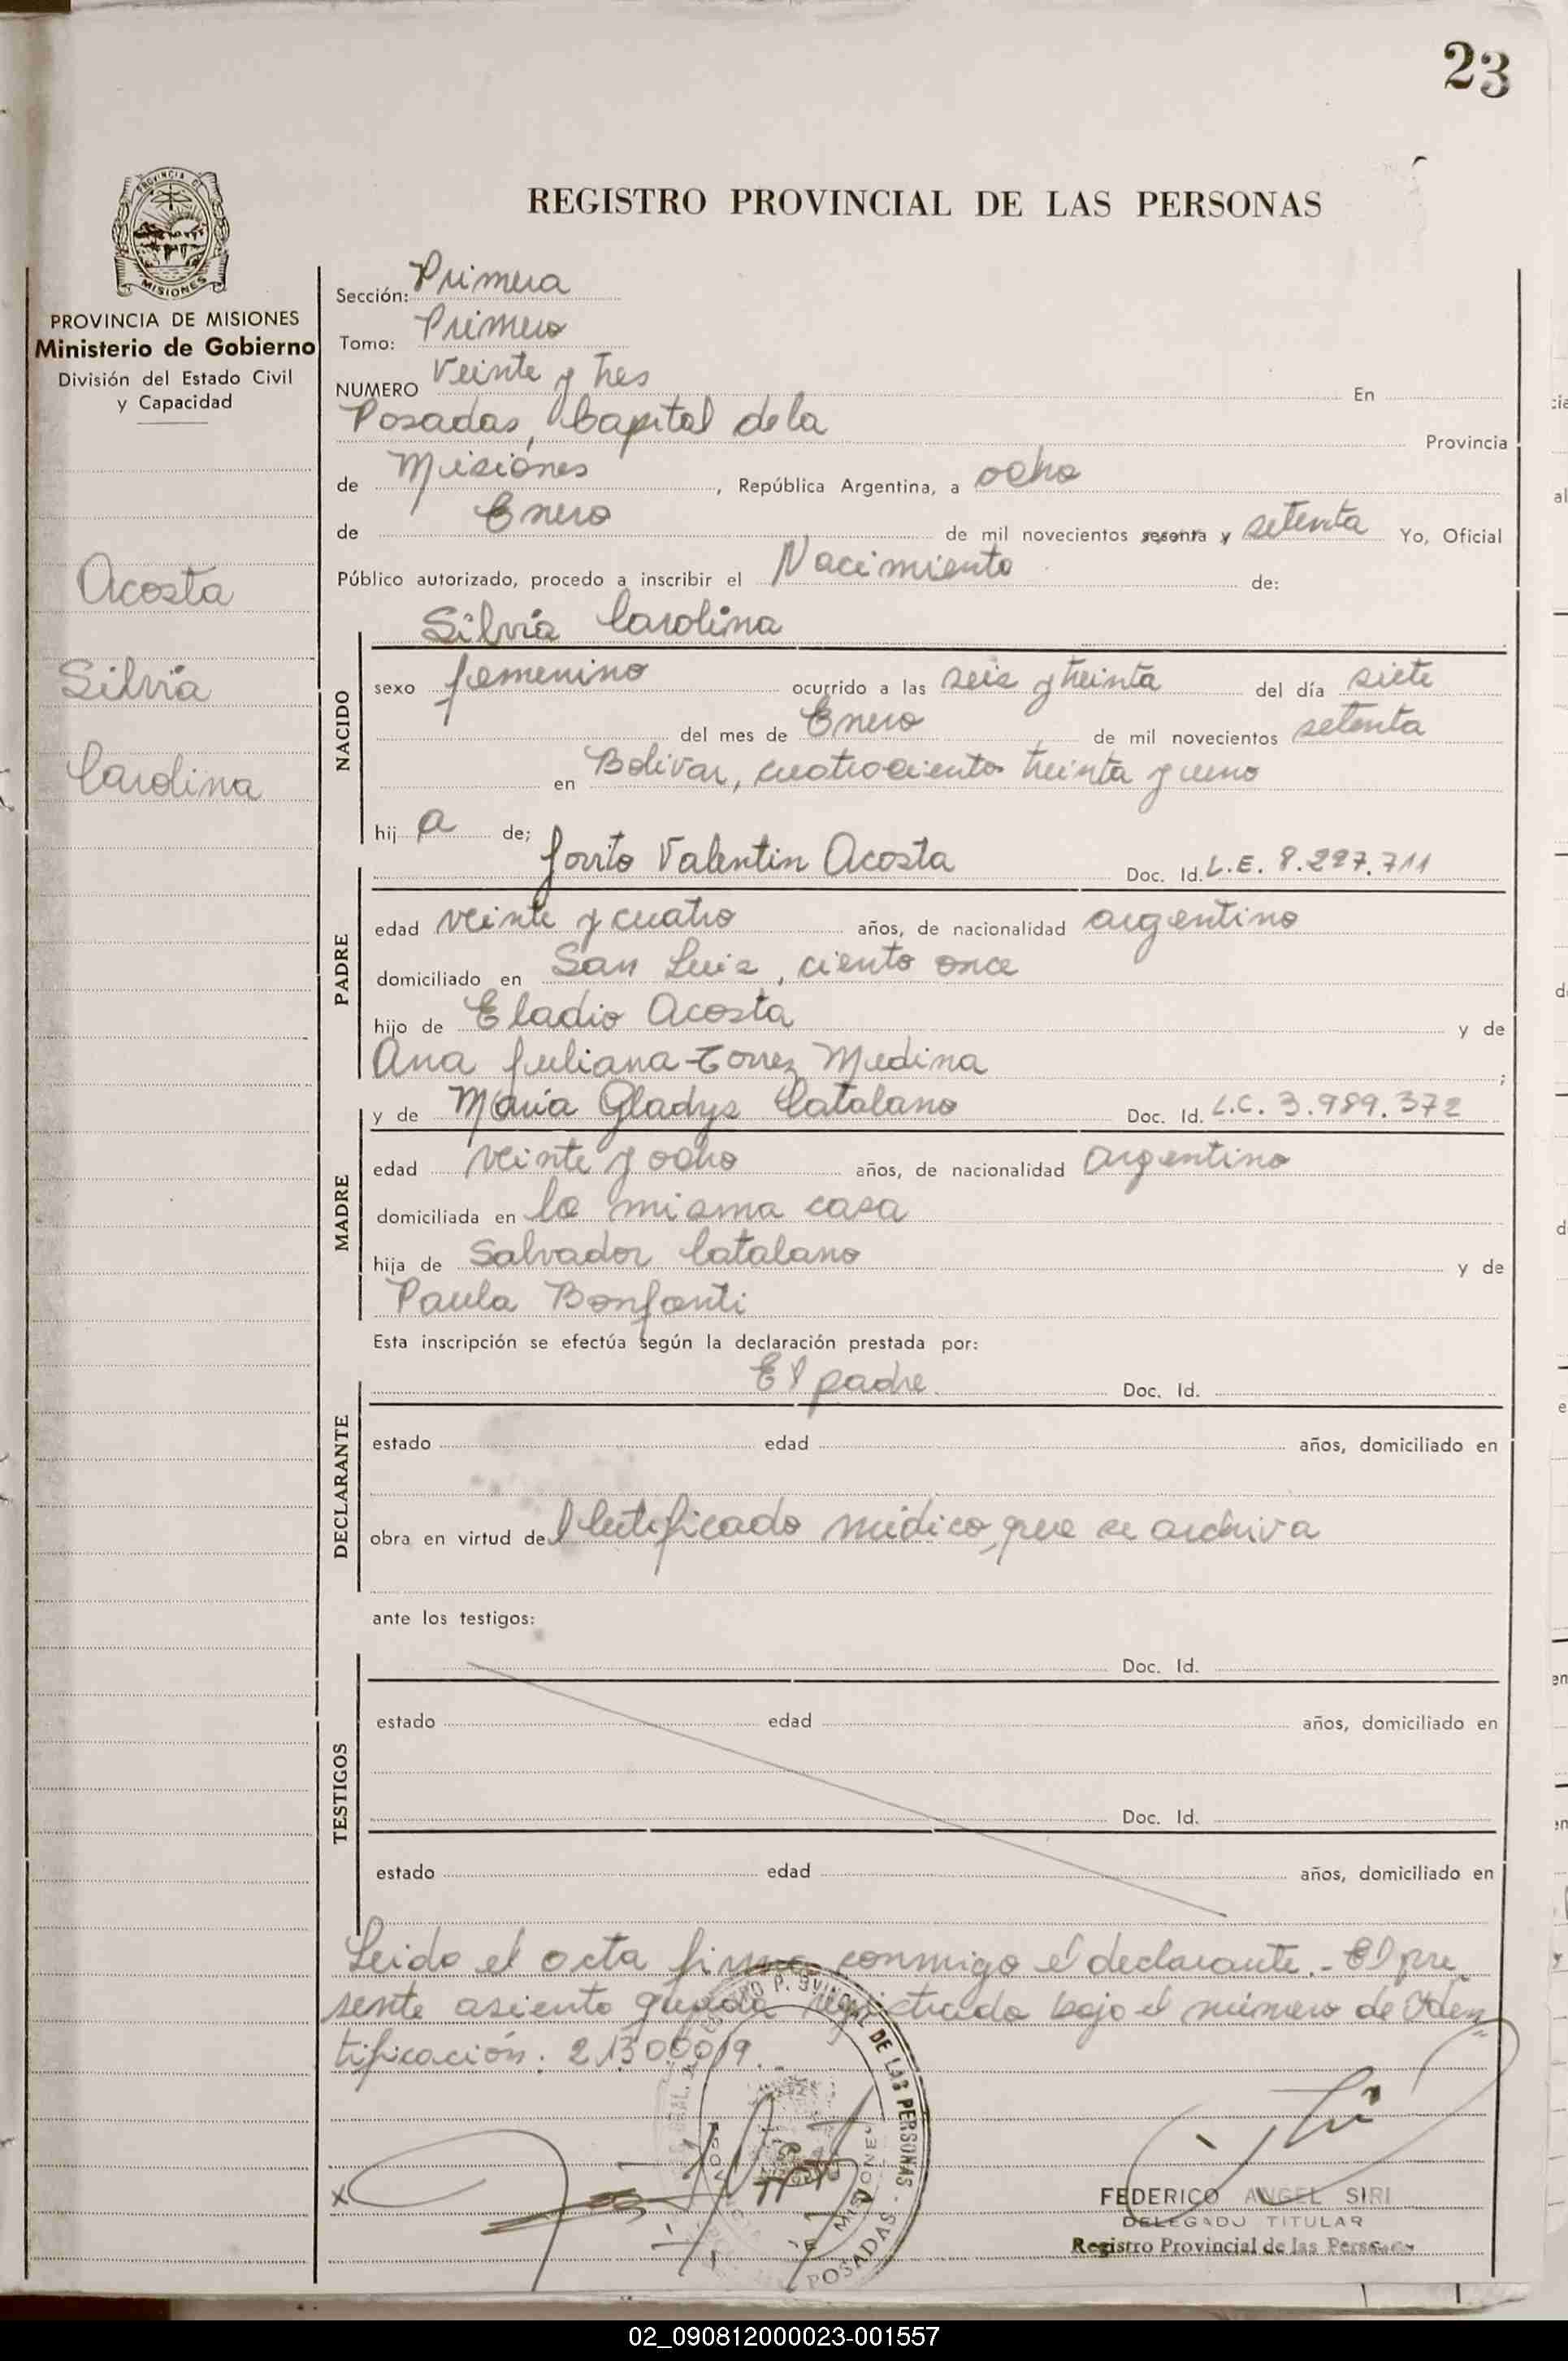 23
PROVINCIA DE
MISIONES
REGISTRO PROVINCIAL DE LAS PERSONAS
PROVINCIA DE MISIONES
Ministerio de Gobierno
División del Estado Civil
y Capacidad
Acosta
Silvia
Carolina
Sección: Primera
Tomo: Primero
NUMERO Veinte y tres En
Posadas, Capital de la Provincia
de Misiones, República Argentina, a ocho
de Enero de mil novecientos sesenta y setenta Yo, Oficial
Público autorizado, procedo a inscribir el Nacimiento de:
NACIDO
Silvia Carolina
sexo femenino ocurrido a las seis y treinta del día siete
del mes de Enero de mil novecientos setenta
en Bolivar, cuatrocientos treinta y uno
hij a de;
PADRE
Valentin Acosta Doc. Id. L.E. 8.227.711
edad veinte y cuatro años, de nacionalidad argentino
domiciliado en San Luis, ciento once
hijo de Eladio Acosta y de
Ana Juliana Torrez Medina ;
MADRE
y de Maria Gladys Catalano Doc. Id. L.C. 3.989.372
edad veinte y ocho años, de nacionalidad argentino
domiciliada en la misma casa
hija de Salvador Catalano y de
Paula Bonfanti
Esta inscripción se efectúa según la declaración prestada por:
DECLARANTE
El padre. Doc. Id.
estado edad años, domiciliado en
obra en virtud del Certificado médico, que se archiva
ante los testigos:
TESTIGOS
Doc. Id.
estado edad años, domiciliado en
Doc. Id.
estado edad años, domiciliado en
Leido el acta firma conmigo el declarante.- El pre
sente asiento queda registrado bajo el número de Iden
tificación: 21300019.-
DE LAS PERSONAS
MISIONES
POSADAS
x
FEDERICO ANGEL SIRI
DELEGADO TITULAR
Registro Provincial de las Personas
02_090812000023-001557